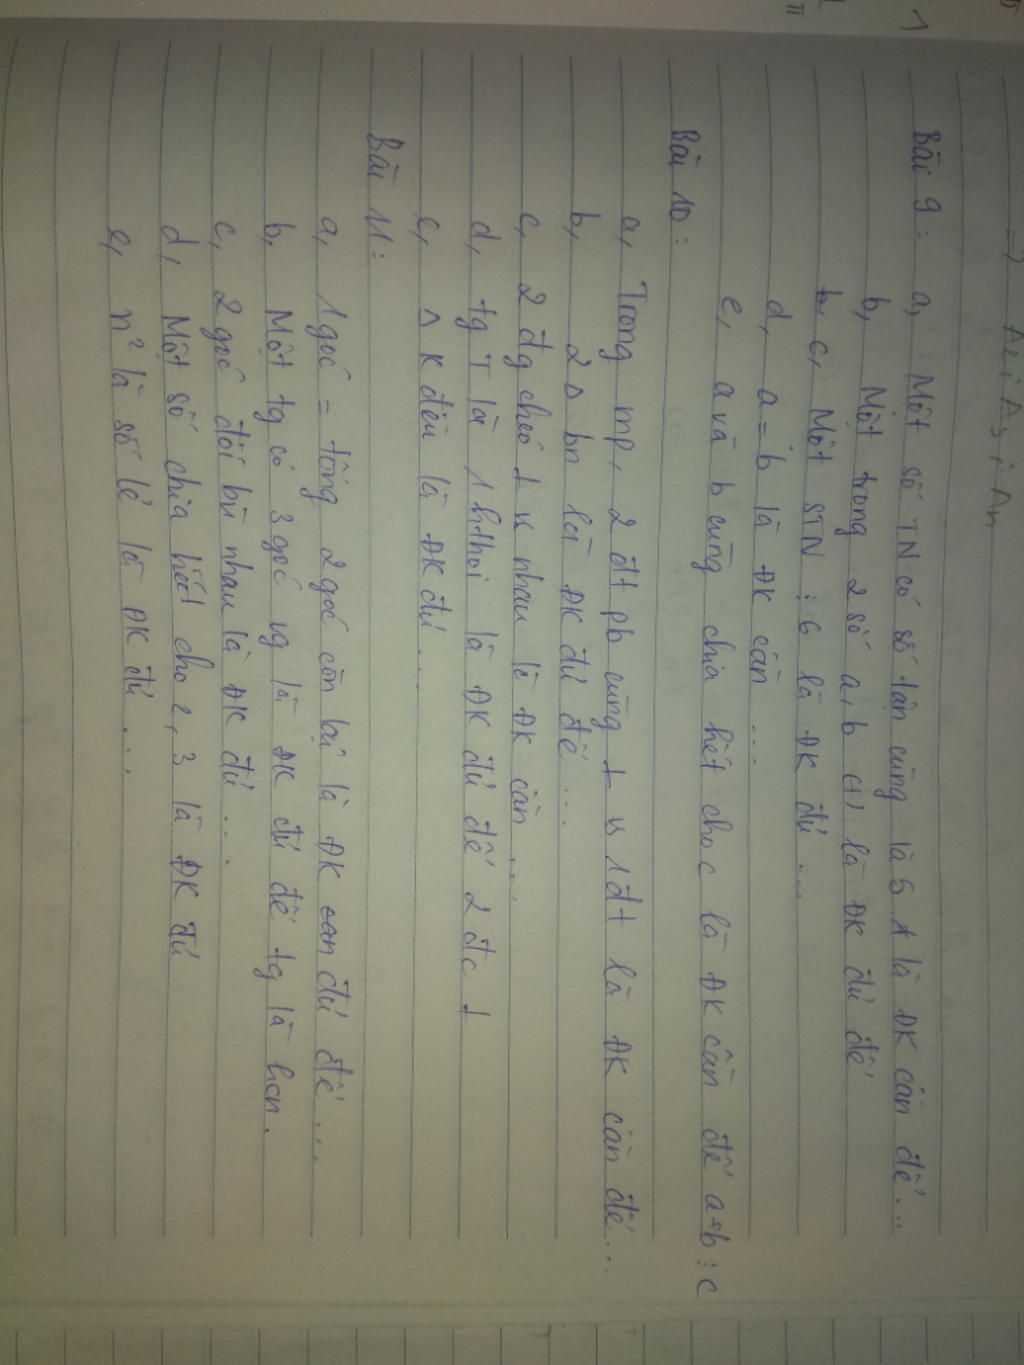 =) A2 ; A3 ; An
Bài 9: a, Một số TN có số tận cùng là 5 là ĐK cần để ...
b, Một trong 2 số a, b (+) là ĐK đủ để
c, Một STN ⋮ 6 là ĐK đủ ...
d, a = b là ĐK cần ...
e, a và b cùng chia hết cho c là ĐK cần để a+b ⋮ c
Bài 10:
a, Trong mp, 2 đt pb cùng ⊥ vs 1 đt là ĐK cần để ...
b, 2 △ bn là ĐK đủ để ...
c, 2 đg chéo ⊥ vs nhau là ĐK cần ...
d, tg T là 1 hthoi là ĐK đủ để 2 đc ⊥
e, △ K đều là ĐK đủ ...
Bài 11:
a, 1 góc = tổng 2 góc còn lại là ĐK đủ để ...
b, Một tg có 3 góc vg là ĐK đủ để tg là hcn.
c, 2 góc đối bù nhau là ĐK đủ ...
d, Một số chia hết cho 2, 3 là ĐK đủ
e, n² là số lẻ là ĐK đủ ...